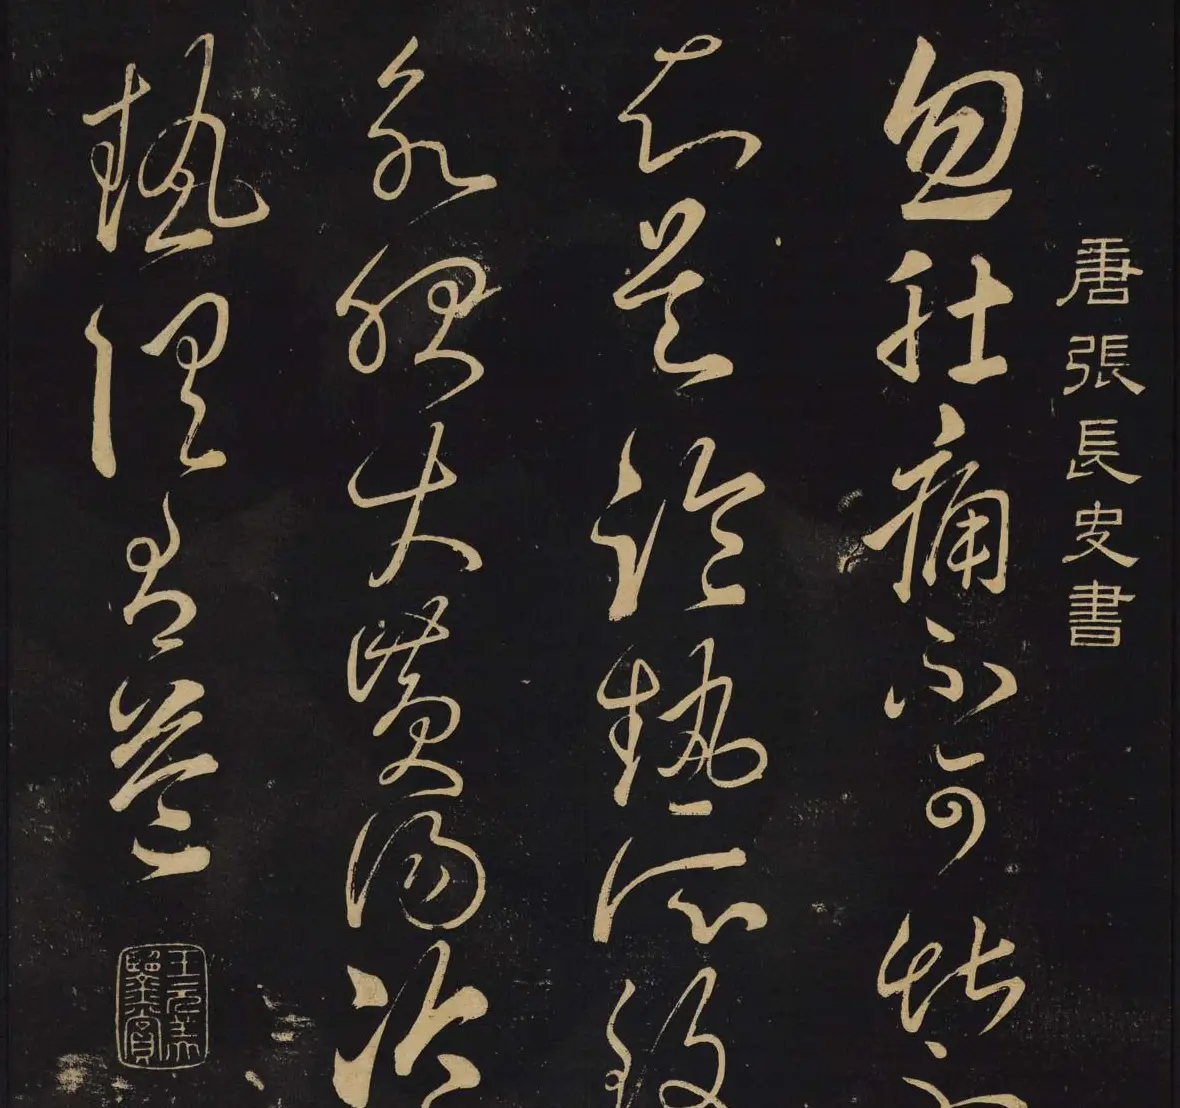 唐張長史書
忽肚痛不可堪不
知是冷熱所致
欲服大黃湯冷
熱俱有益